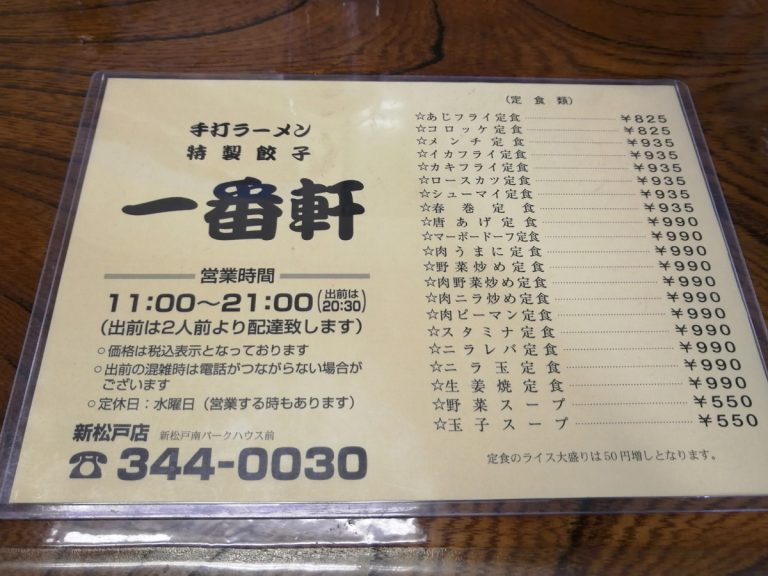 手打ラーメン
特製餃子
一番軒
営業時間
11:00〜21:00(出前は20:30)
(出前は2人前より配達致します)
○価格は税込表示となっております
○出前の混雑時は電話がつながらない場合が
ございます
○定休日:水曜日(営業する時もあります)
新松戸店 新松戸南パークハウス前
☎344-0030
(定食類)
☆あじフライ定食 ¥825
☆コロッケ定食 ¥825
☆メンチ定食 ¥935
☆イカフライ定食 ¥935
☆カキフライ定食 ¥935
☆ロースカツ定食 ¥935
☆シューマイ定食 ¥935
☆春巻定食 ¥935
☆唐あげ定食 ¥990
☆マーボードーフ定食 ¥990
☆肉うまに定食 ¥990
☆野菜炒め定食 ¥990
☆肉野菜炒め定食 ¥990
☆肉ニラ炒め定食 ¥990
☆肉ピーマン定食 ¥990
☆スタミナ定食 ¥990
☆ニラレバ定食 ¥990
☆ニラ玉定食 ¥990
☆生姜焼定食 ¥990
☆野菜スープ ¥550
☆玉子スープ ¥550
定食のライス大盛りは50円増しとなります。